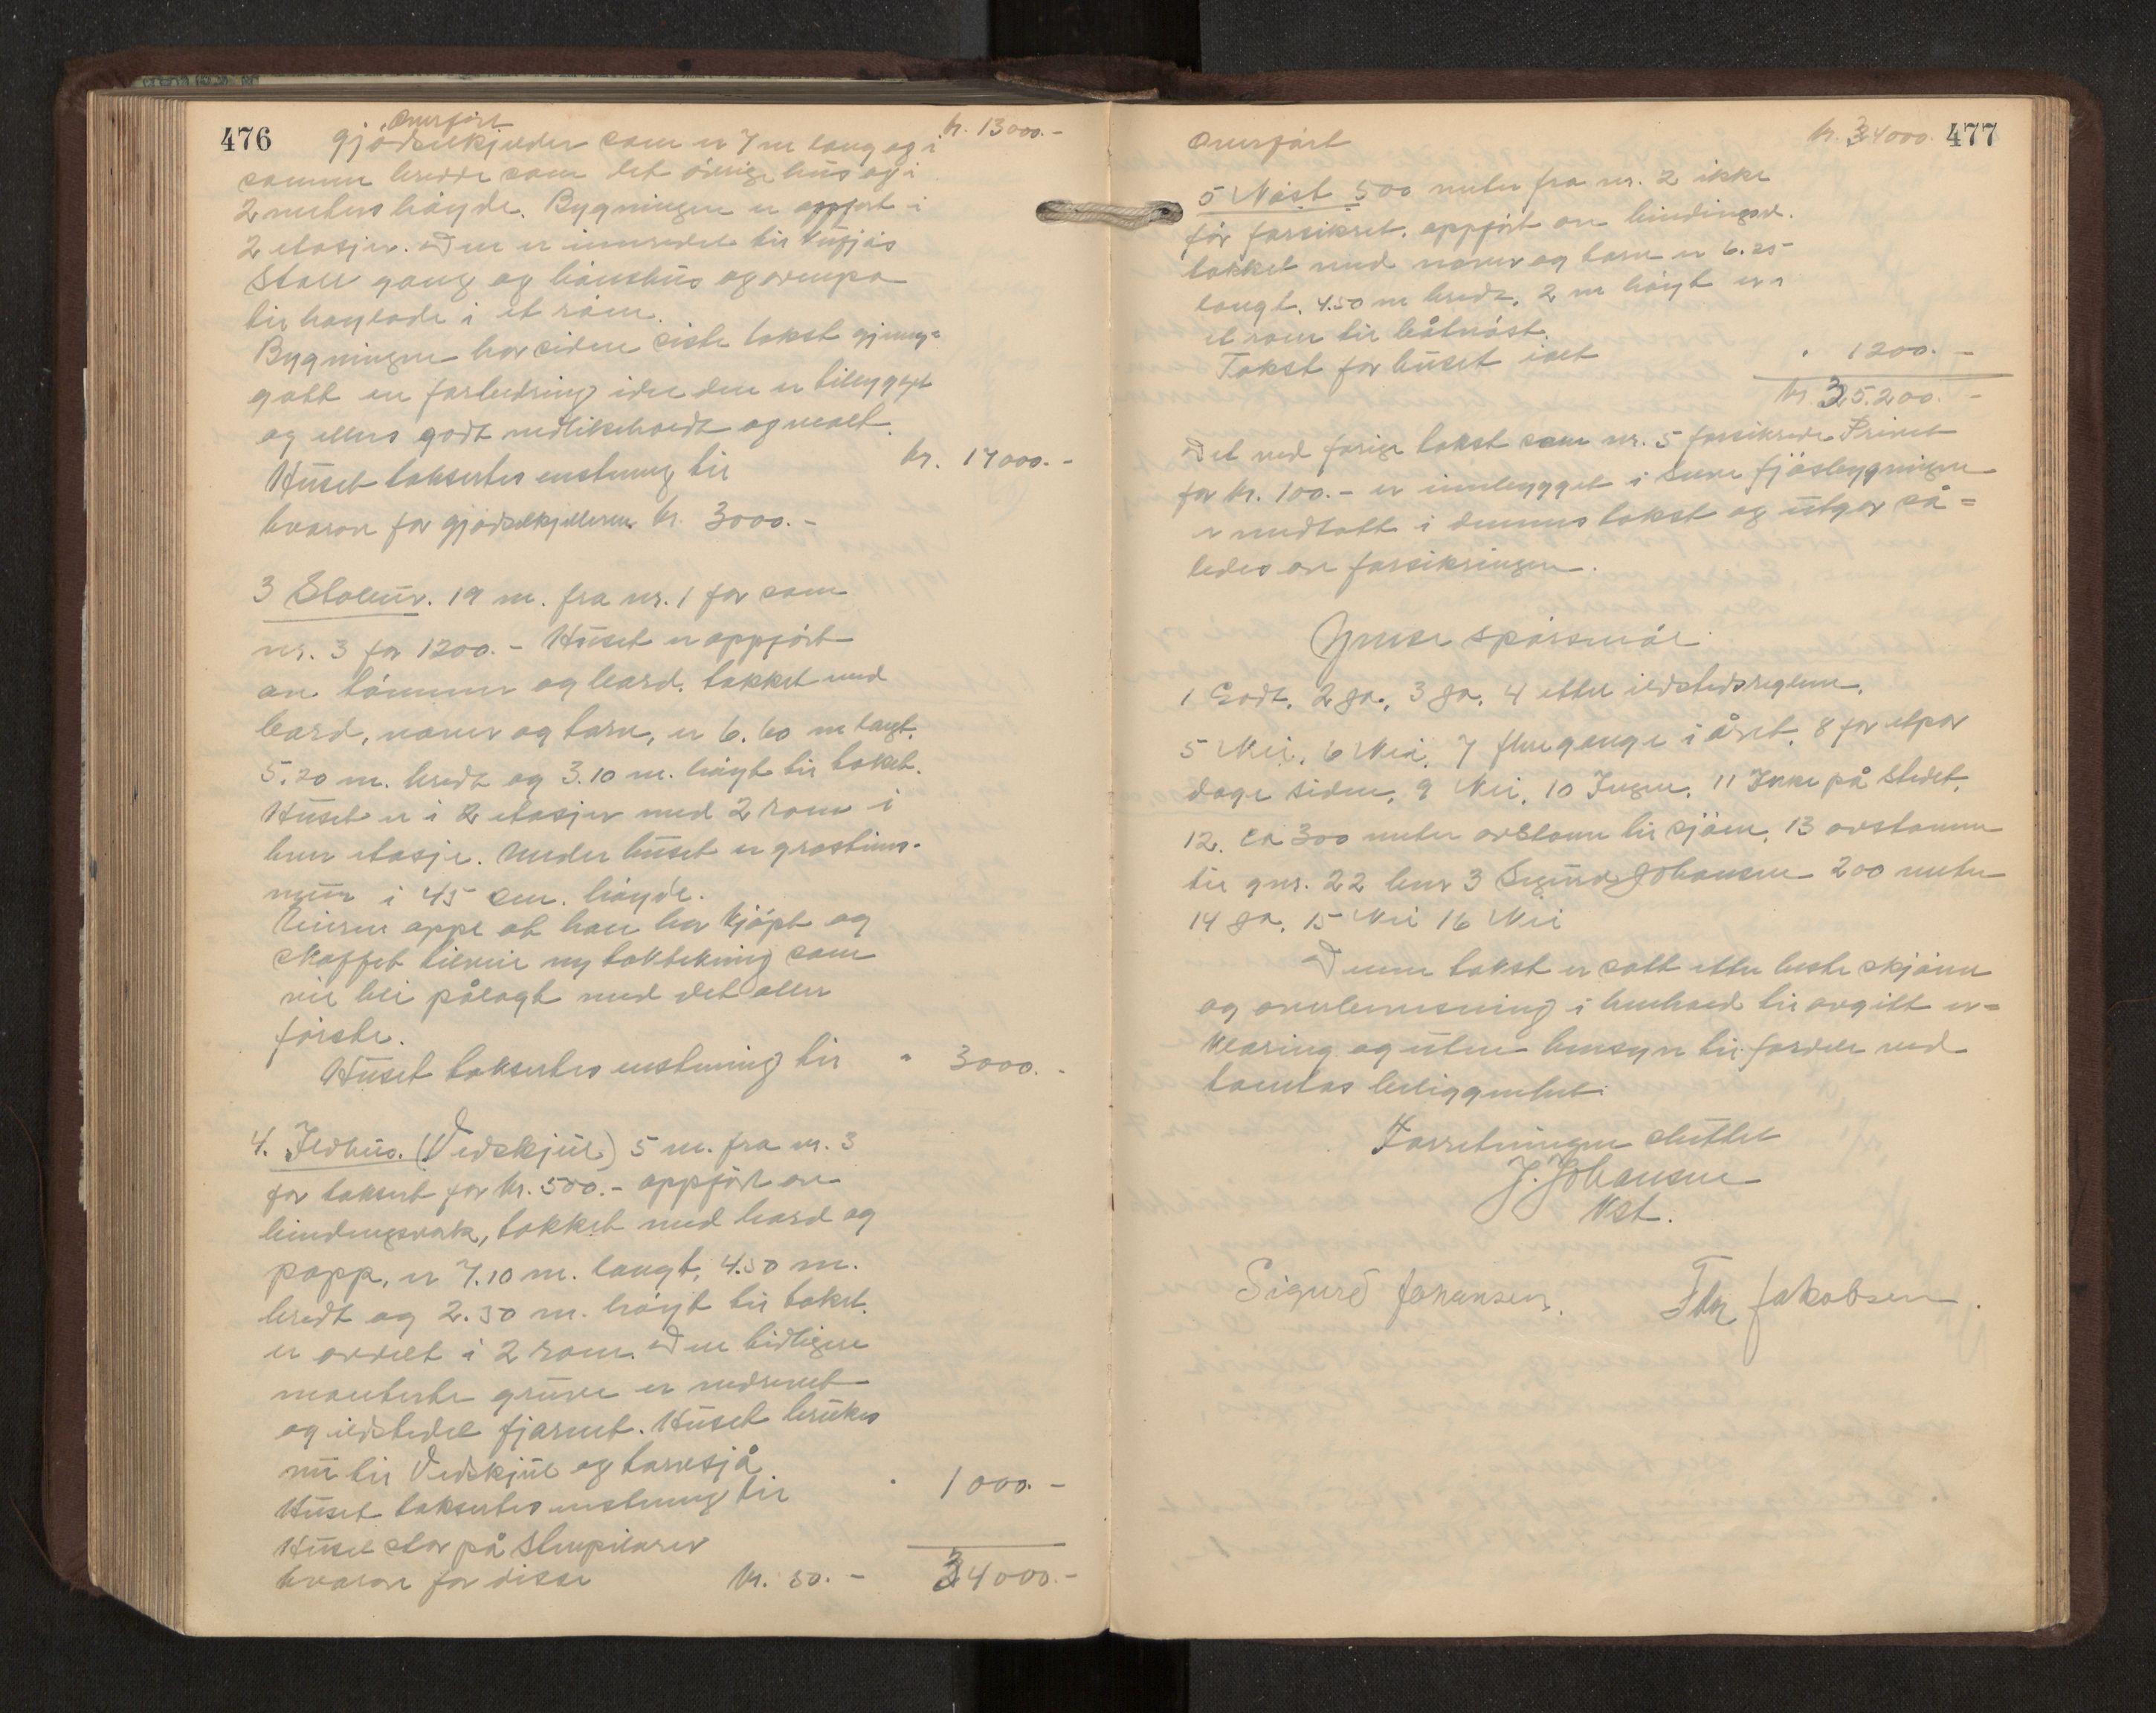 476
Overført kr. 13000.-
gjødselkjelder som er 7 m lang og i
samme bredde som det øvrige hus og i
2 meters høyde. Bygningen er oppført i
2 etasjer. Den er innredet til kufjøs
Stall gang og hønshus og ovenpå
til høylade i et rom.
Bygningen har siden siste takst gjenny=
gått en forbedring idet den er tilbygget
og ellers godt vedlikeholdt og malt.
Huset takseres enstemmig til kr. 17000.-
hvorav for gjødselkjelleren kr. 3000.-
3 Stabur. 19 m. fra nr. 1 før som
nr. 3 for 1200.- Huset er oppført
av tømmer og bord, takket med
bord, never og torv, er 6.60 m langt.
5.20 m. bredt og 3.10 m. høyt til taket.
Huset er i 2 etasjer med 2 rom i
hver etasje. Under huset er gråstens-
mur i 45 cm. høyde.
Eieren oppe at han har kjøpt og
skaffet tilveie ny taktekning som
vil bli pålagt med det aller
første.
Huset takseres enstemmig til " 3000.-
4. Ildhus. (Vedskjul) 5 m. fra nr. 3
før taksert for kr. 500.- oppført av
bindingsverk, takket med bord og
papp, er 7.10 m. langt, 4.50 m.
bredt og 2.30 m. høyt til taket.
er avdelt i 2 rom. Den tidligere
monterte gruve er nedrevet
og ildstedet fjernet. Huset brukes
nu til Vedskjul og torvsjå
Huset takseres enstemmig til " 1000.-
Huset står på Stenpilarer
hvorav for disse kr. 50.- 34000.-
477
Overført kr. 34000.
5 Nøst 500 meter fra nr. 2 ikke
før forsikret. oppført av bindingsv.
takket med never og torv er 6.25
langt. 4.50 m bredt. 2 m høyt er i
et rom til båtnøst.
Takst for huset i alt " 1200.-
kr. 35.200.-
Det ved forige takst som nr. 5 forsikrede Privet
for kr. 100.- er innbygget i Selve fjøsbygningen
er medtatt i dennes takst og utgår så=
ledes av forsikringen.
Gense spørsmål.
1 Godt. 2 Ja. 3 Ja. 4 etter ildstedsreglene.
5 Nei. 6 Nei. 7 flere gange i året. 8 for etpar
dage siden. 9 Nei. 10 Ingen. 11 Ikke på stedet.
12. ca 300 meter avstann til sjøen. 13 avstann
til gnr. 22 bnr 3 Sigurd Johansen 200 meter
14 Ja. 15 Nei 16 Nei
Denne takst er satt etter beste skjønn
og overbevisning i henhold til avgitt er=
klæring og uten hensyn til fordele ved
tomtas beliggenhet.
Forretningen sluttet
J. Johansen
Vst.
Sigurd Johansen. Jakobsen.